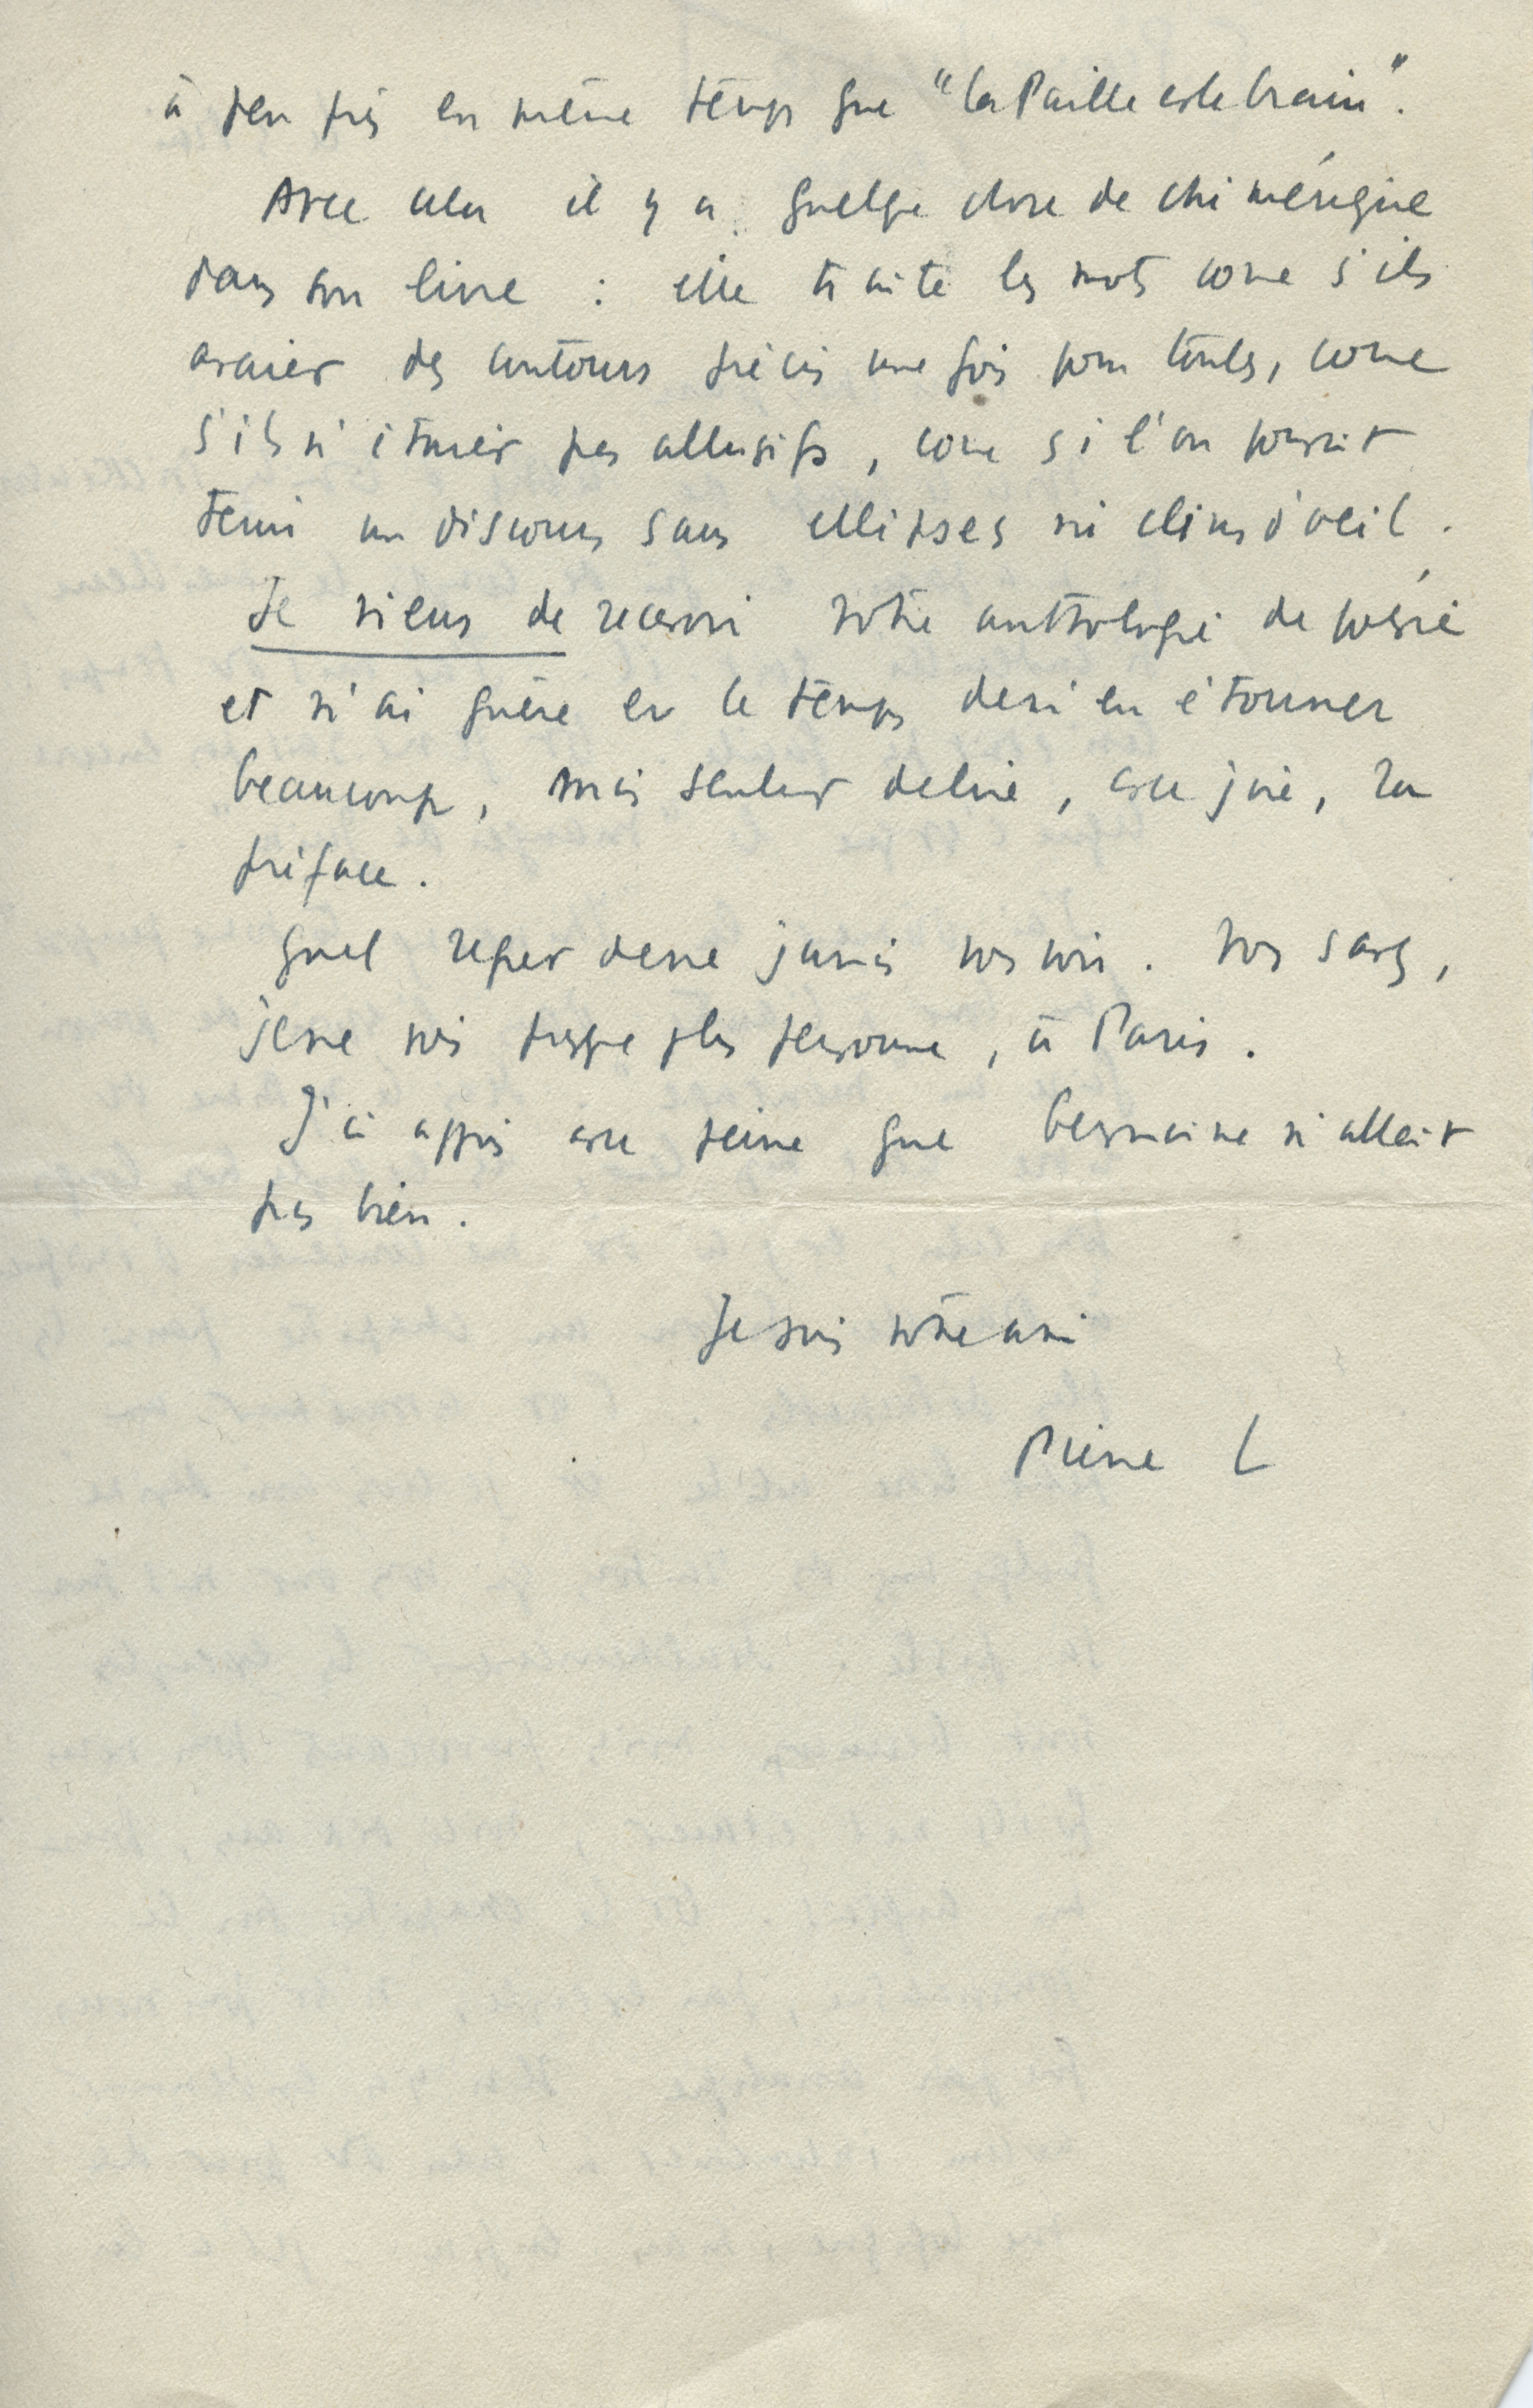 à peu près en même temps que "la Paille et le Grain".
Avec cela il y a quelque chose de chimérique
dans son livre : elle traite les mots comme s'ils
avaient des contours précis une fois pour toutes, comme
s'ils n'étaient pas allusifs, comme si l'on pouvait
tenir un discours sans ellipses ni clins d'œil.
Je viens de recevoir votre anthologie de poésie
et n'ai guère eu le temps de m'en étonner
beaucoup, mais seulement de lire, avec joie, la
préface.
Quel regret de ne jamais vous voir. Vous savez,
je ne vois presque plus personne, à Paris.
J'ai appris avec peine que Germaine n'allait
pas bien.
Je suis votre ami
Pierre L